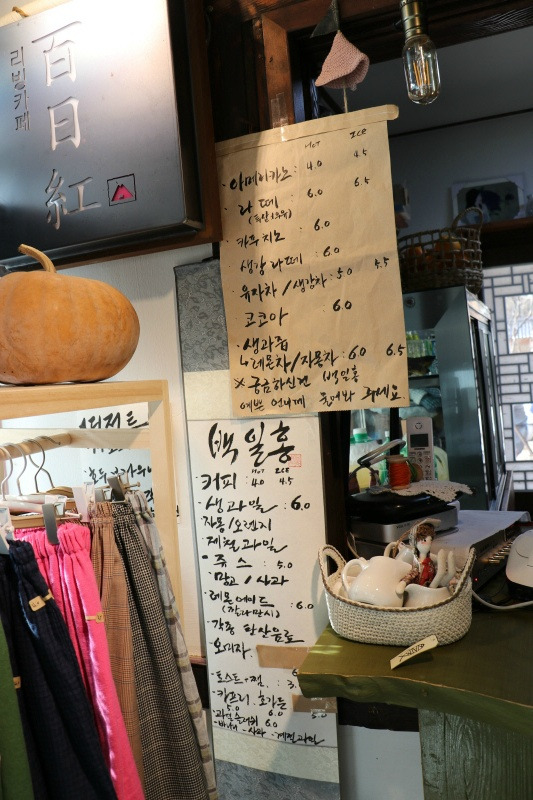 百日紅
리빙카페
HOT ICE
· 아메리카노 : 4.0 4.5
· 라떼 6.0 6.5
· 카푸치노 : 6.0
· 생강라떼 : 6.0
· 유자차 / 생강차 : 5.0 5.5
· 코코아 6.0
· 생과즙
↳ 레몬차/자몽차 : 6.0 6.5
※ 궁금하신건 백일홍
예쁜 언니께 물어봐 주세요.
디저트
백일홍
HOT ICE
커피 : 4.0 4.5
· 생과일 : 6.0
자몽/오렌지
제철과일
· 쥬스 : 5.0
· 망고/사과
· 레몬에이드 : 6.0
· 각종 탄산음료
· 오미자
· 토스트+잼
· 카프리
5.0
6.0
5.0